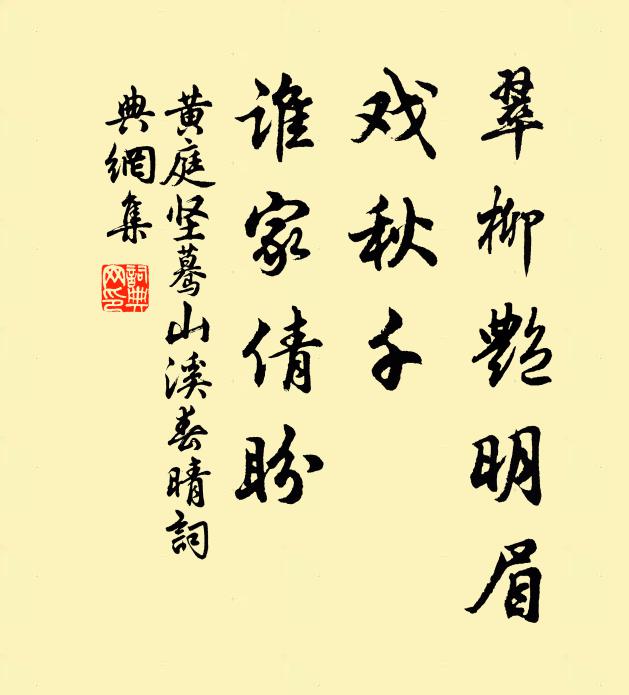 翠柳艷明眉
戏秋千
谁家倩盼
黄庭坚蓦山溪春晴詞
典網集
詞典网印